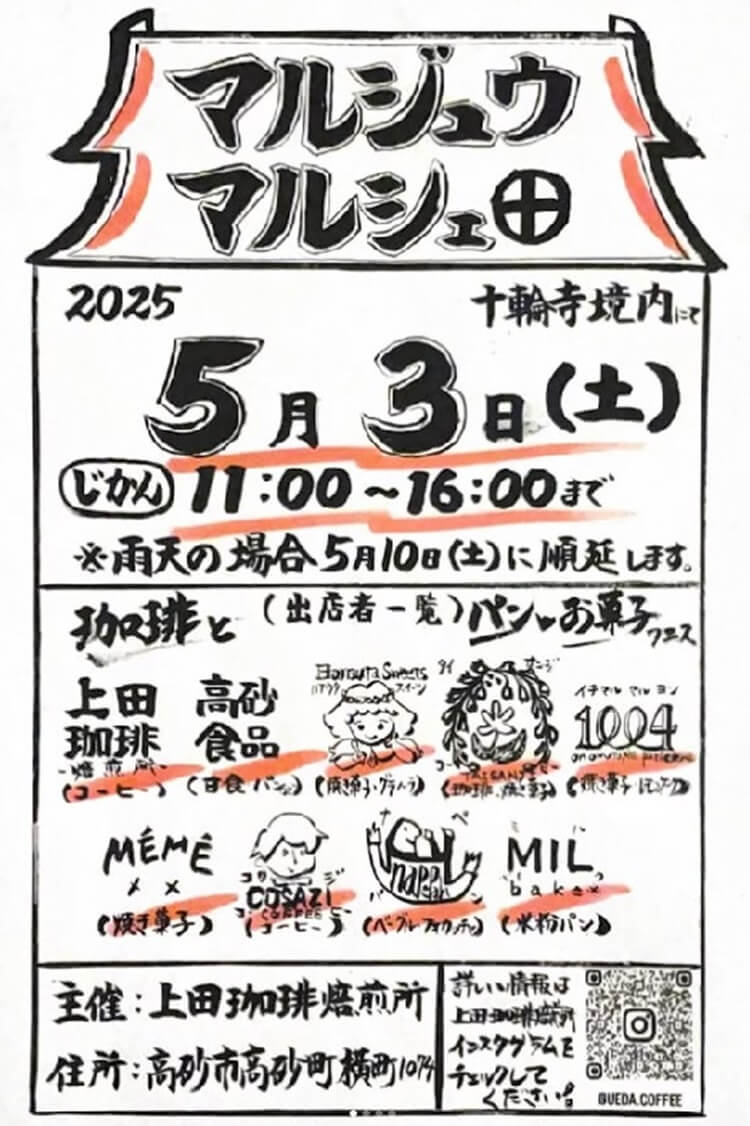 マルジュウ
マルシェ
2025 十輪寺境内にて
5月3日(土)
じかん 11:00~16:00まで
※雨天の場合5月10日(土)に順延します。
珈琲と (出店者一覧) パン お菓子
上田
珈琲
焙煎所
(コーヒー)
高砂
食品
(甘食パン)
Bonouta Sweets
スイーツ
(焼き菓子・グラノーラ)
タイ サンジ
(珈琲・焼き菓子)
イチマル マル ヨン
1004
MÉMÉ
(焼き菓子)
コサジ
COSAZI
COFFEE
(コーヒー)
ナペパン
napepan
(ベーグル・フォカッチャ)
MIL
bake
(米粉パン)
主催:上田珈琲焙煎所
住所:高砂市高砂町横町1074
詳しい情報は
上田珈琲焙煎所
インスタグラムを
チェックして
ください!
@UEDA.COFFEE